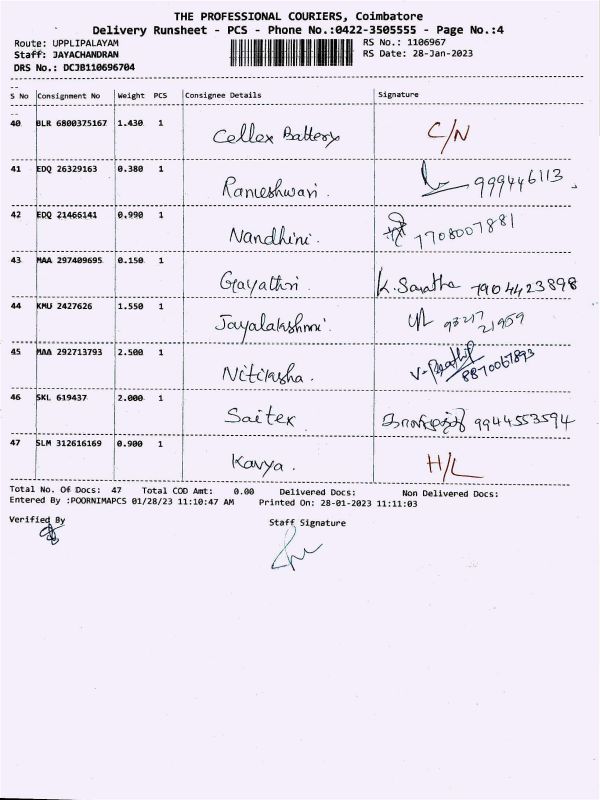 THE PROFESSIONAL COURIERS, Coimbatore
Delivery Runsheet - PCS - Phone No.:0422-3505555 - Page No.:4
Route: UPPLIPALAYAM RS No.: 1106967
Staff: JAYACHANDRAN RS Date: 28-Jan-2023
DRS No.: DCJB110696704
S No Consignment No Weight PCS Consignee Details Signature
40 BLR 6800375167 1.430 1 Cellex Battery C/N
41 EDQ 26329163 0.380 1 Rameshwari. 999446113
42 EDQ 21466141 0.990 1 Nandhini. 7708007881
43 MAA 297409695 0.150 1 Gayathri K. Saratha 7904423898
44 KMU 2427626 1.550 1 Jayalakshmi. 93217 21959
45 MAA 292713793 2.500 1 Nitiksha. 8870067893
46 SKL 619437 2.000 1 Saitex 9944553594
47 SLM 312616169 0.900 1 Kavya. H/L
Total No. Of Docs: 47 Total COD Amt: 0.00 Delivered Docs: Non Delivered Docs:
Entered By :POORNIMAPCS 01/28/23 11:10:47 AM Printed On: 28-01-2023 11:11:03
Verified By Staff Signature